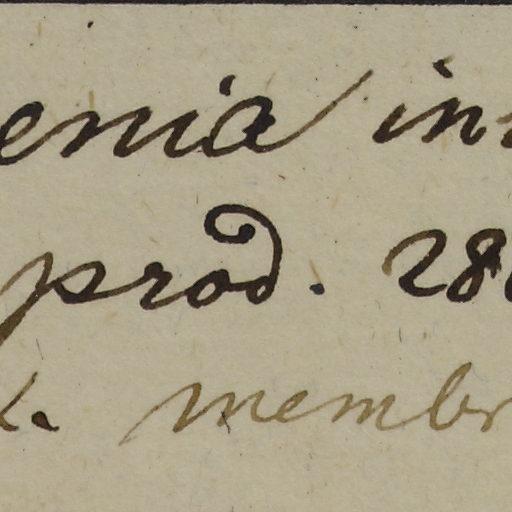 enia in
prod. 28
. membr